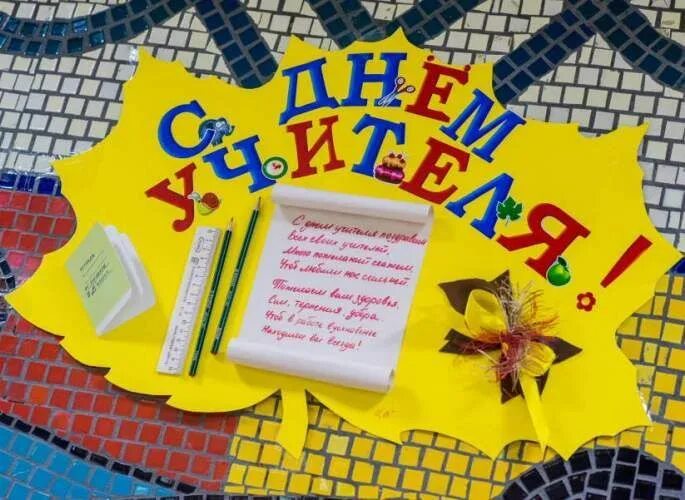 С ДНЁМ
УЧИТЕЛЯ!
С днём учителя поздравим
Всех своих учителей,
Много пожеланий скажем,
Чтоб любили нас сильней.
Пожелаем вам здоровья,
Сил, терпения, добра.
Чтоб в работе вдохновенье
Находило вас всегда!